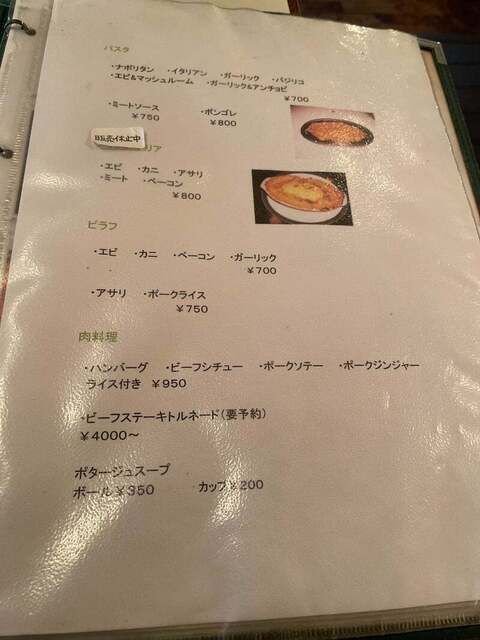 パスタ
・ナポリタン ・イタリアン ・ガーリック ・バジリコ
・エビ&マッシュルーム ・ガーリック&アンチョビ
￥700
・ミートソース ・ボンゴレ
￥750 ￥800
販売休止中
リア
・エビ ・カニ ・アサリ
・ミート ・ベーコン
￥800
ピラフ
・エビ ・カニ ・ベーコン ・ガーリック
￥700
・アサリ ・ポークライス
￥750
肉料理
・ハンバーグ ・ビーフシチュー ・ポークソテー ・ポークジンジャー
ライス付き ￥950
・ビーフステーキトルネード(要予約)
￥4000～
ポタージュスープ
ボール￥350 カップ￥200